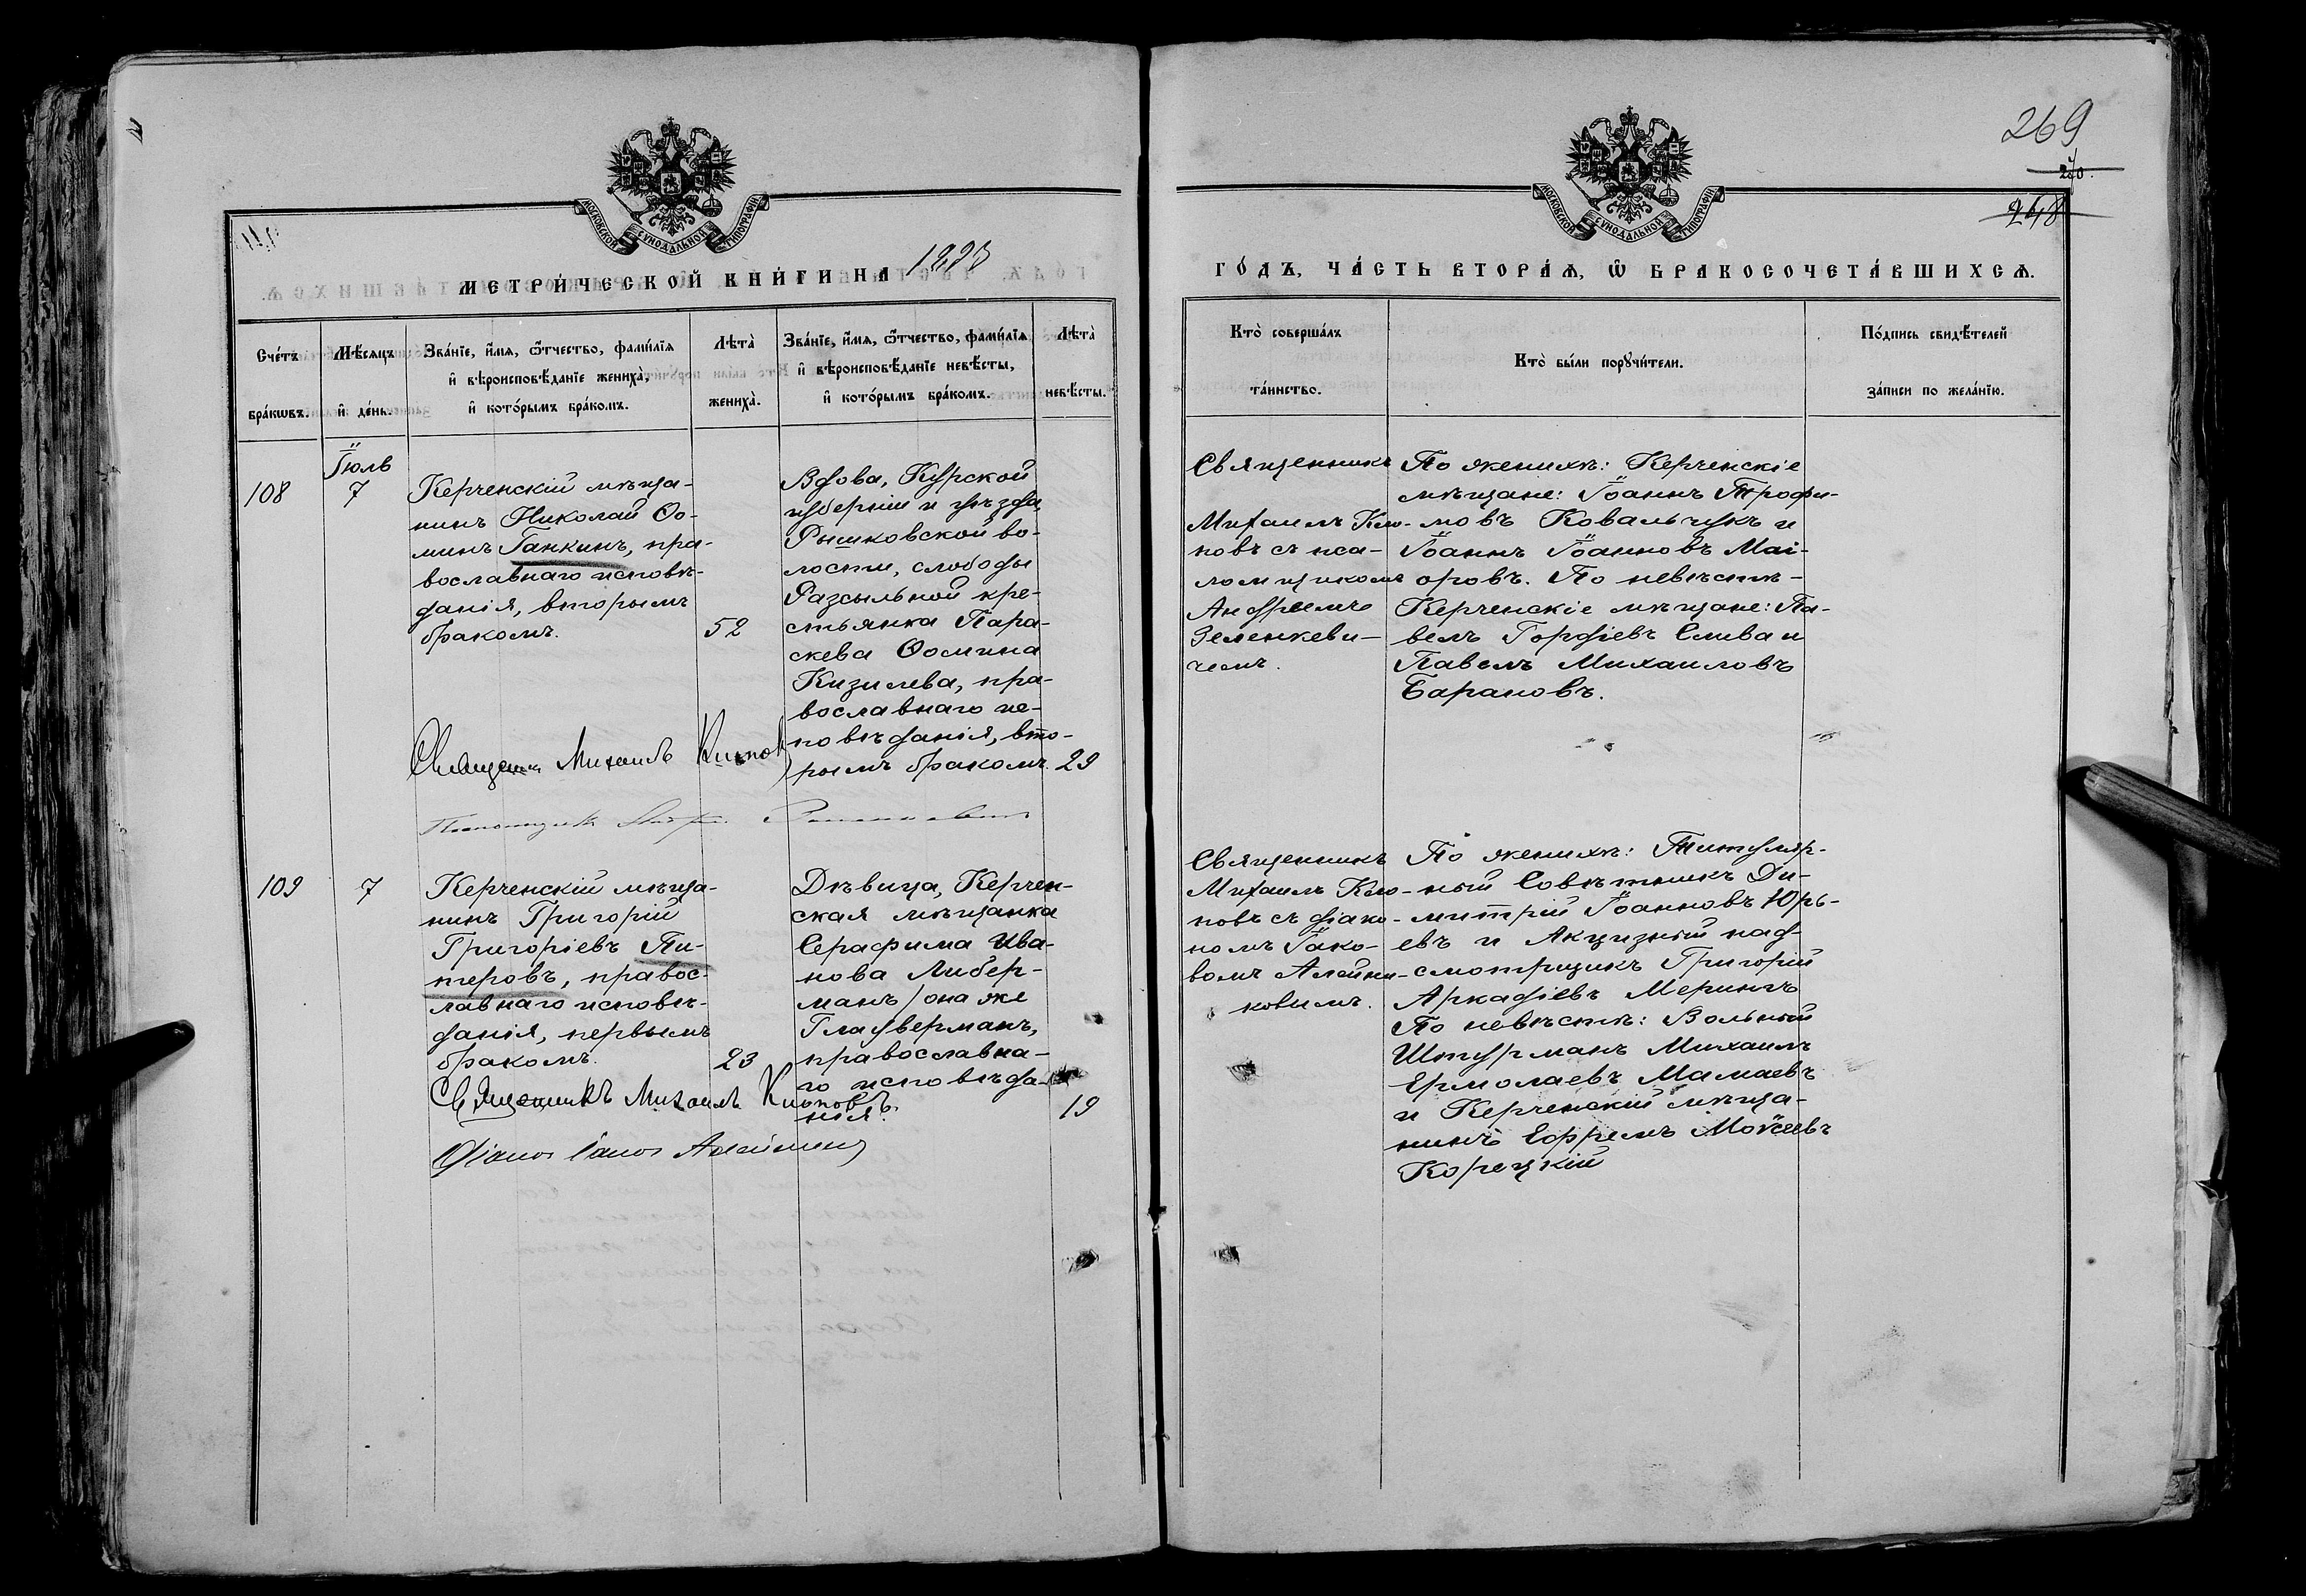 269
270.
268
МОСКОВСКОЙ СУНОДАЛЬНОЙ ТИПОГРАФІИ
МОСКОВСКОЙ СУНОДАЛЬНОЙ ТИПОГРАФІИ
МЕТРИ́ЧЕСКОЙ КНИ́ГИ НА
ГО́ДЪ, ЧА́СТЬ ВТОРА́Я, Ѽ БРАКОСОЧЕТА́ВШИХСЯ.
Сче́тъ
бра́кѡвъ.
Мѣ́сяцъ
и҆ де́нь.
Зва́нїе, и҆́мя, ѻ҆́тчество, фами́лїя
и҆ вѣроисповѣ́данїе жениха̀,
и҆ кото́рымъ бра́комъ.
Лѣта̀
жениха̀.
Зва́нїе, и҆́мя, ѻ҆́тчество, фами́лїя
и҆ вѣроисповѣ́данїе невѣ́сты,
и҆ кото́рымъ бра́комъ.
Лѣта̀
невѣ́сты.
Кто̀ соверша́лъ
та́инство.
Кто̀ бы́ли порꙋчи́тели.
По́дпись свидѣ́телей
за́писи по жела́нїю.
108
Іюль
7
Керченскій мѣща-
нинъ Николай Ѳо-
минъ Ганкинъ, пра-
вославнаго исповѣ-
данія, вторымъ
бракомъ.
52
Вдова, Курской
губерніи и уѣзда,
Рышковской во-
лости, слободы
Разсыльной кре-
стьянка Пара-
скева Ѳомина
Кизилева, пра-
вославнаго ис-
повѣданія, вто-
рымъ бракомъ.
29
Священникъ
Михаилъ Кио-
повъ съ пса-
ломщикомъ
Андреемъ
Зеленкеви-
чемъ.
По женихѣ: Керченскіе
мѣщане: Іоаннъ Трофи-
мовъ Ковальчукъ и
Іоаннъ Іоанновъ Маі-
оровъ. По невѣстѣ-
Керченскіе мѣщане: Па-
велъ Гордіевъ Слива и
Павелъ Михаиловъ
Барановъ.
Священникъ Михаилъ
109
7
Керченскій мѣща-
нинъ Григорій
Григоріевъ Пи-
теровъ, правос-
лавнаго исповѣ-
данія, первымъ
бракомъ.
23
Дѣвица, Керчен-
ская мѣщанка
Серафима Ива-
нова Либер-
манъ / она же
Глауберманъ,
православна-
го исповѣда-
нія.
19
Священникъ
Михаилъ Кио-
повъ съ діако-
номъ Іако-
вомъ Алейни-
ковымъ.
По женихѣ: Титуляр-
ный Совѣтникъ Ди-
митрій Іоанновъ Юрь-
евъ и Акцизный над-
смотрщикъ Григорій
Аркадіевъ Мерингъ
По невѣстѣ: Вольный
Штурманъ Михаилъ
Ермолаевъ Мамаевъ
и Керченскій мѣща-
нинъ Ефремъ Моѵсеевъ
Корецкій
Священникъ Михаилъ